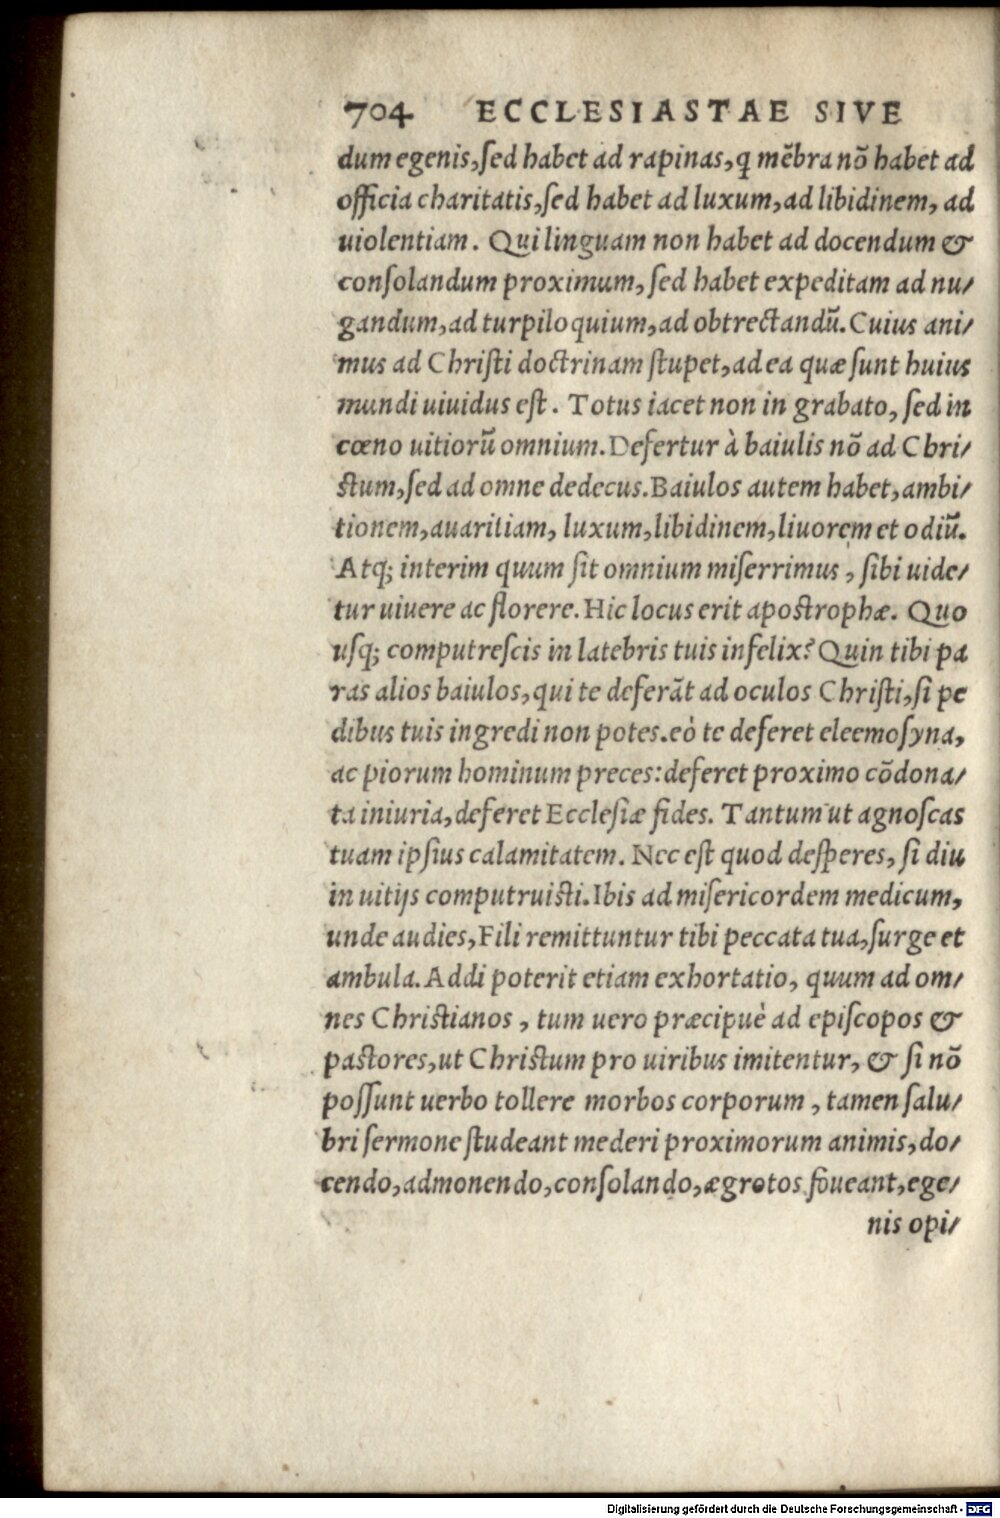 704 ECCLESIASTAE SIVE
dum egenis, ſed habet ad rapinas, q mẽbra nõ habet ad
officia charitatis, ſed habet ad luxum, ad libidinem, ad
uiolentiam. Qui linguam non habet ad docendum &
conſolandum proximum, ſed habet expeditam ad nu/
gandum, ad turpiloquium, ad obtrectandũ. Cuius ani/
mus ad Chriſti doctrinam ſtupet, ad ea quæ ſunt huius
mundi uiuidus eſt. Totus iacet non in grabato, ſed in
cœno uitiorũ omnium. Defertur à baiulis nõ ad Chri/
ſtum, ſed ad omne dedecus. Baiulos autem habet, ambi/
tionem, auaritiam, luxum, libidinem, liuorem et odiũ.
Atq; interim quum ſit omnium miſerrimus, ſibi uide/
tur uiuere ac florere. Hic locus erit apoſtrophæ. Quo
uſq; computreſcis in latebris tuis infelix? Quin tibi pa
ras alios baiulos, qui te deferãt ad oculos Chriſti, ſi pe
dibus tuis ingredi non potes. eò te deferet eleemoſyna,
ac piorum hominum preces: deferet proximo cõdona/
ta iniuria, deferet Eccleſiæ fides. Tantum ut agnoſcas
tuam ipſius calamitatem. Nec eſt quod deſperes, ſi diu
in uitijs computruiſti. Ibis ad miſericordem medicum,
unde audies, Fili remittuntur tibi peccata tua, ſurge et
ambula. Addi poterit etiam exhortatio, quum ad om/
nes Chriſtianos, tum uero præcipuè ad epiſcopos &
paſtores, ut Chriſtum pro uiribus imitentur, & ſi nõ
poſſunt uerbo tollere morbos corporum, tamen ſalu/
bri ſermone ſtudeant mederi proximorum animis, do/
cendo, admonendo, conſolando, ægrotos foueant, ege/
nis opi/
Digitalisierung gefördert durch die Deutsche Forschungsgemeinschaft - DFG